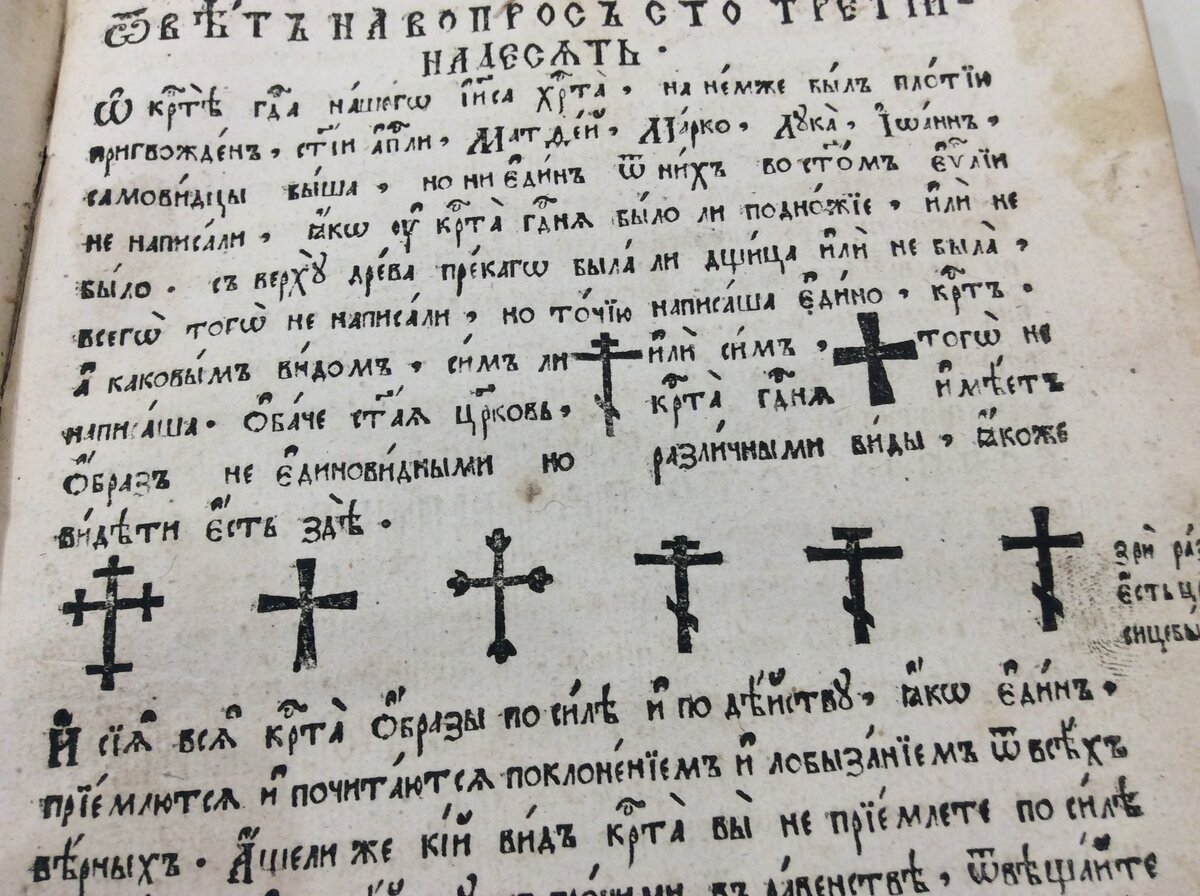 Ѿвѣ́тъ на вопросъ сто трeтїй-
надесѧть .
Ѡ҆ кр҃тѣ̀ гд҃а на́шегѡ і҆и҃са хр҃та̀ , на не́мже бы́лъ пло́тїю
пригвожде́нъ , ст҃і́и а҆п҃ли , Матѳе́й , Ма́рко , Лꙋка̀ , І҆ѡа́ннъ ,
самови́дцы бы́ша , но ни є҆ди́нъ ѿ ни́хъ во ст҃о́мъ є҆ѵ҃лїи
не написа́ли , ꙗ҆́кѡ ᲂу҆ кр҃та̀ гд҃нѧ бы́ло ли подно́жїе , и҆лѝ не
бы́ло . съ верхꙋ̀ дре́ва пре́кагѡ была́ ли дщи́ца и҆лѝ не была̀ ,
всегѡ̀ тогѡ̀ не написа́ли , но то́чїю написа́ша є҆ди́но , кр҃тъ .
А҆ каковы́мъ ви́домъ , си́мъ ли и҆лѝ си́мъ , тогѡ̀ не
написа́ша . Ѻ҆ба́че ст҃а́ѧ цр҃ковь , кр҃та̀ гд҃нѧ и҆мѣ́етъ
ѻ҆́бразъ не є҆динови́дными но разли́чными ви́ды , ꙗ҆́коже
ви́дѣти є҆́сть здѣ̀ .
зрѝ
є҆́сть
И҆ сїѧ̑ всѧ̑ кр҃та̀ ѻ҆́бразы по си́лѣ и҆ по дѣ́йствꙋ , ꙗ҆́кѡ є҆ди́нъ ,
прїе́млютсѧ и҆ почита́ютсѧ поклоне́нїемъ и҆ лобыза́нїемъ ѿ всѣ́хъ
вѣ́рныхъ . А҆́щели же кі́й ви́дъ кр҃та̀ вы̀ не прїе́млете по си́лѣ
въ ра́венствѣ , ѿвѣща́йте